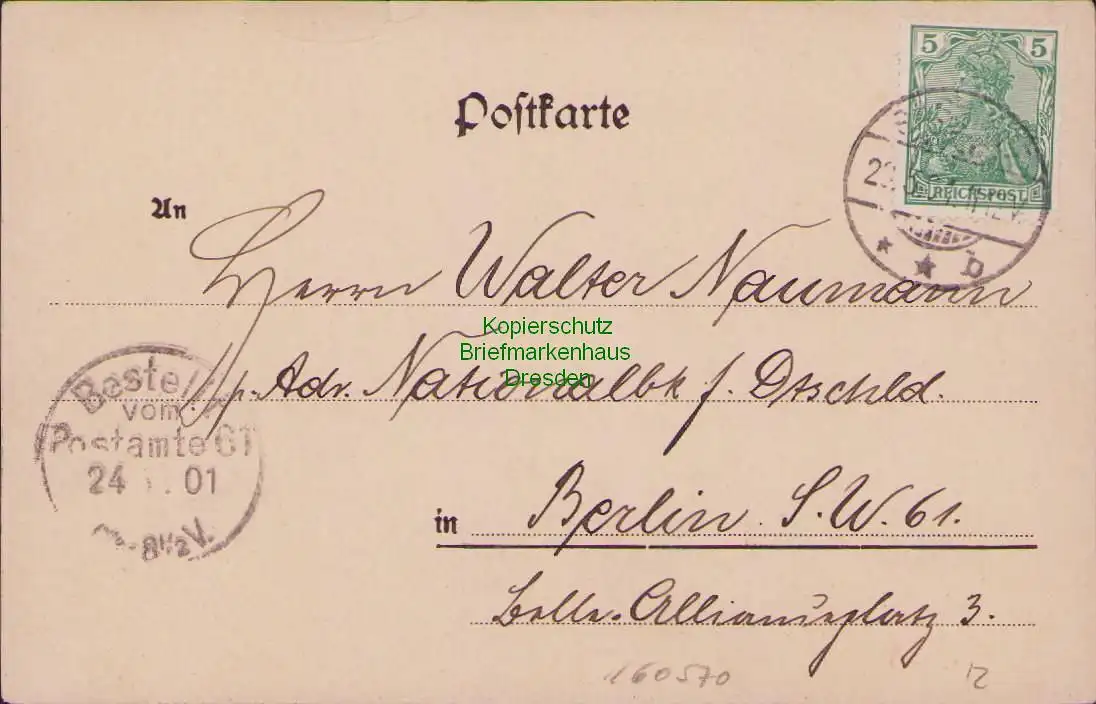 5 5
REICHSPOST
Postkarte
An
Herrn Walter Naumann
p. Adr. Nationalbk f. Dtschld.
in Berlin S.W. 61.
Belle-Allianceplatz 3.
Kopierschutz
Briefmarkenhaus
Dresden
vom
Postamte 61
24 01
8½V.
b
160570